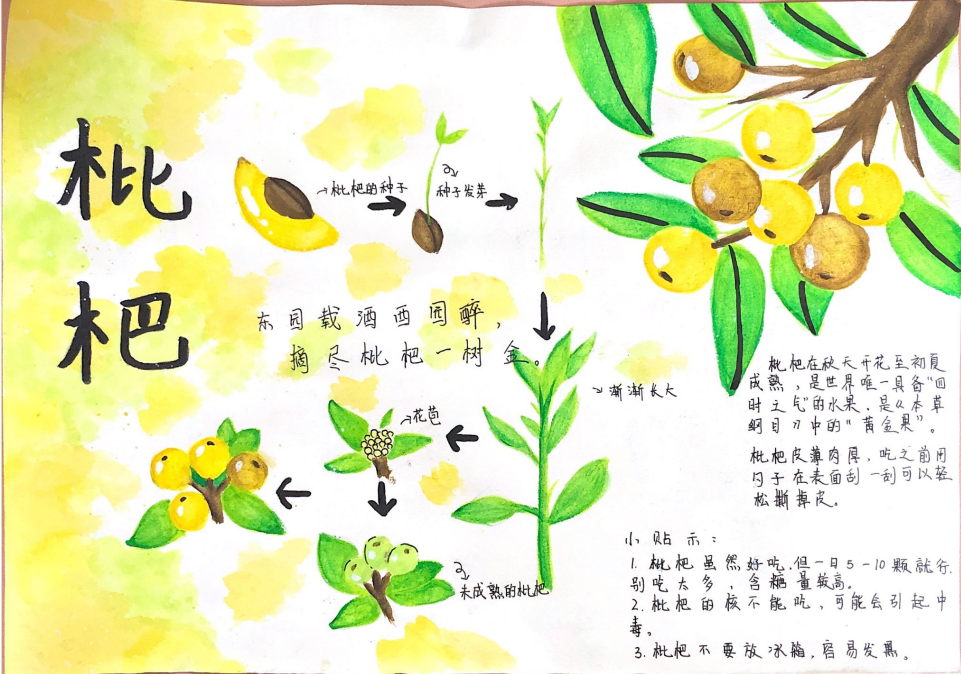 枇
杷
→枇杷的种子
种子发芽
东园载酒西园醉，
摘尽枇杷一树金。
→渐渐长大
→花苞
未成熟的枇杷
枇杷在秋天开花至初夏
成熟，是世界唯一具备“四
时之气”的水果，是《本草
纲目》中的“黄金果”。
枇杷皮薄肉厚，吃之前用
勺子在表面刮一刮可以轻
松撕掉皮。
小贴示：
1.枇杷虽然好吃,但一日5-10颗就行,
别吃太多，含糖量较高。
2.枇杷的核不能吃、可能会引起中
毒。
3.枇杷不要放冰箱,容易发黑。